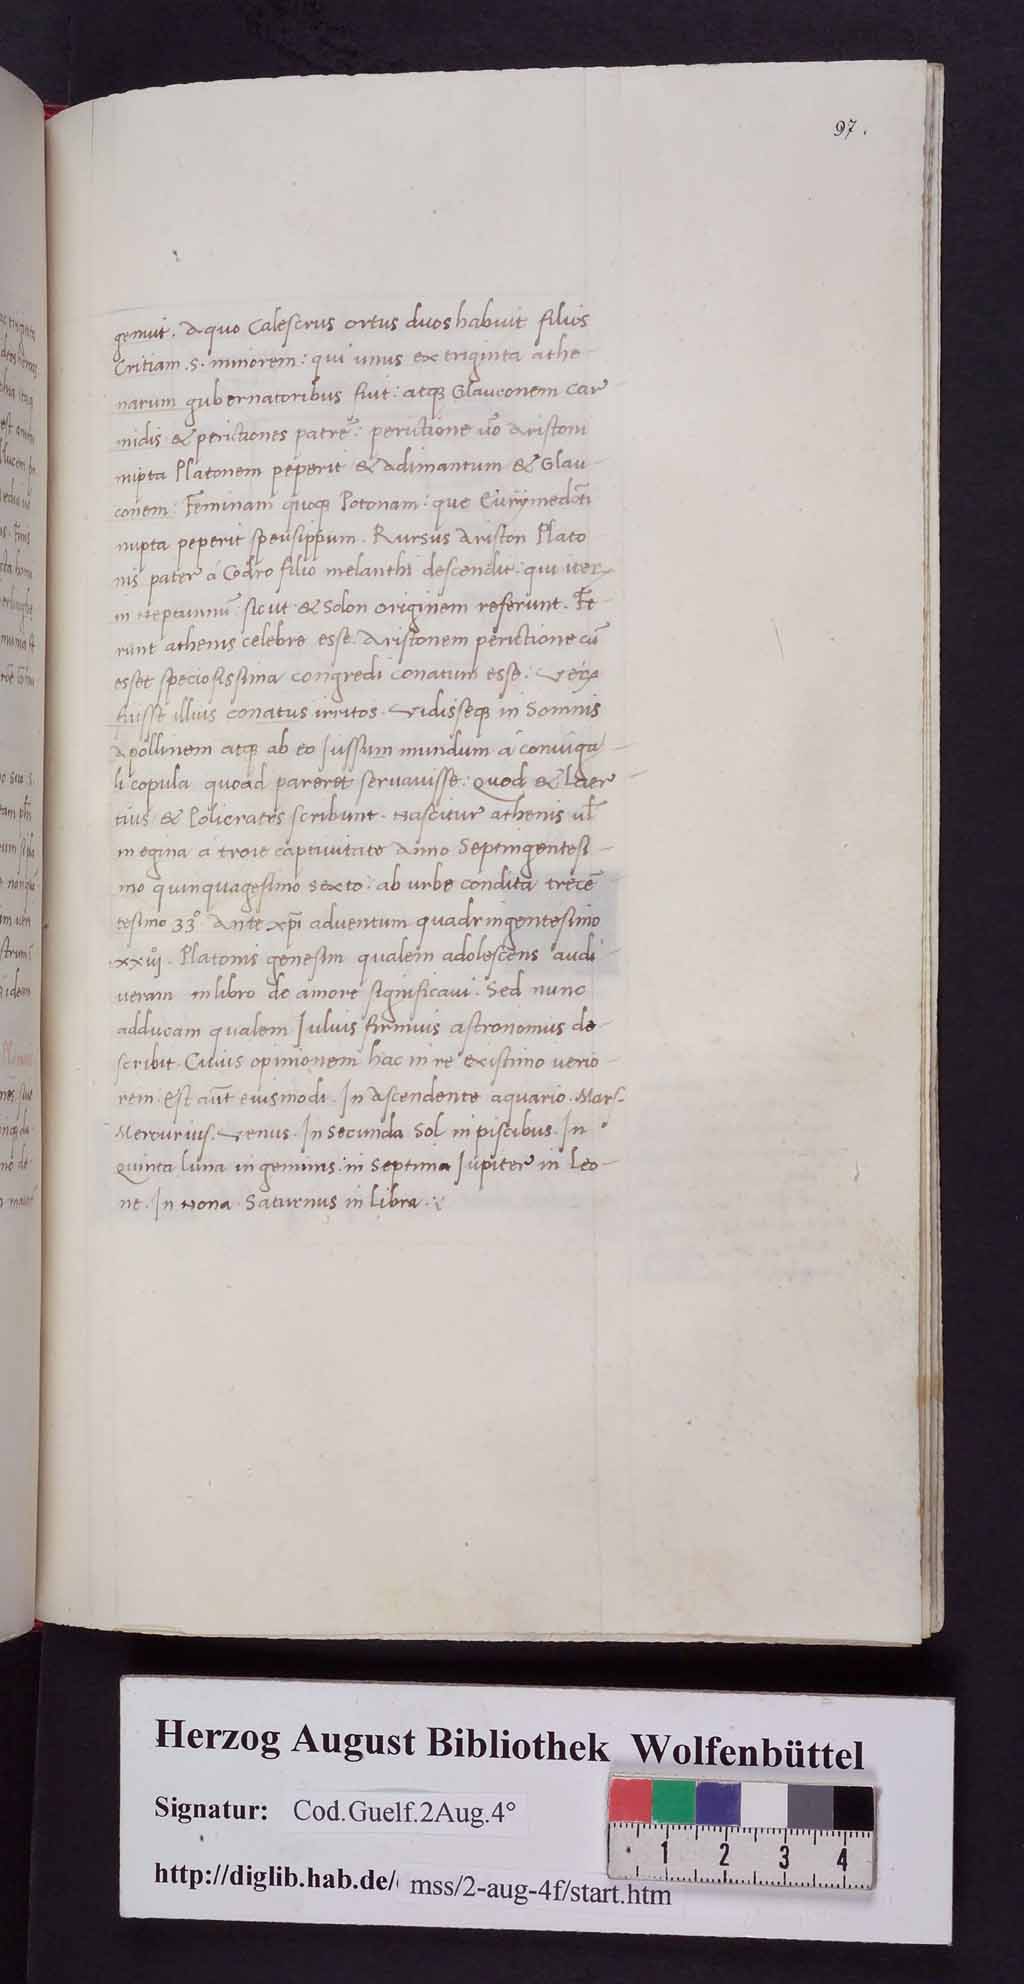 97.
genuit. A quo Calescrus ortus duos habuit filios
Critiam .s. minorem: qui unus ex triginta athe-
narum gubernatoribus fuit: atq; Glauconem Car
midis & perictiones patrē: perictione ũo Aristoni
nupta Platonem peperit & Adimantum & Glau-
conem: Feminam quoq; Potonam: que Eurymedōti
nupta peperit speusippum. Rursus Ariston Plato
nis pater á Codro filio melanthi descendit: qui iteꝝ
in Neptunnũ sicut & Solon originem referunt. Fe-
runt athenis celebre esse. Aristonem perictione cũ
esset speciosissima congredi conatum esse: Veꝝ
fuisse illius conatus irritos. Vidisseq; in Somnis
Apollinem atq; ab eo Iussum mundum á coniuga-
li copula quoad pareret servavisse: Quod & Laer-
tius & Policrates scribunt. Nascitur athenis ul̃
in egina á troie captivitate Anno Septingentesi-
mo quinquagesimo sexto: ab urbe condita trecē
tesimo 33° Ante xp̄i adventum quadringentesimo
xxiij. Platonis genesim qualem adolescens audi-
veram in libro de amore significavi. Sed nunc
adducam qualem Iulius firmius astronomus de-
scribit. Cuius opinionem hac in re existimo verio-
rem. est aũt eiusmodi. In Ascendente aquario. Mars.
Mercurius. Venus. In Secunda Sol in piscibus. In
Quinta luna in geminis: in Septima Iupiter in Leo-
ne. In Nona Saturnus in libra.
Herzog August Bibliothek Wolfenbüttel
Signatur: Cod.Guelf.2Aug.4°
http://diglib.hab.de/ mss/2-aug-4f/start.htm
1 2 3 4